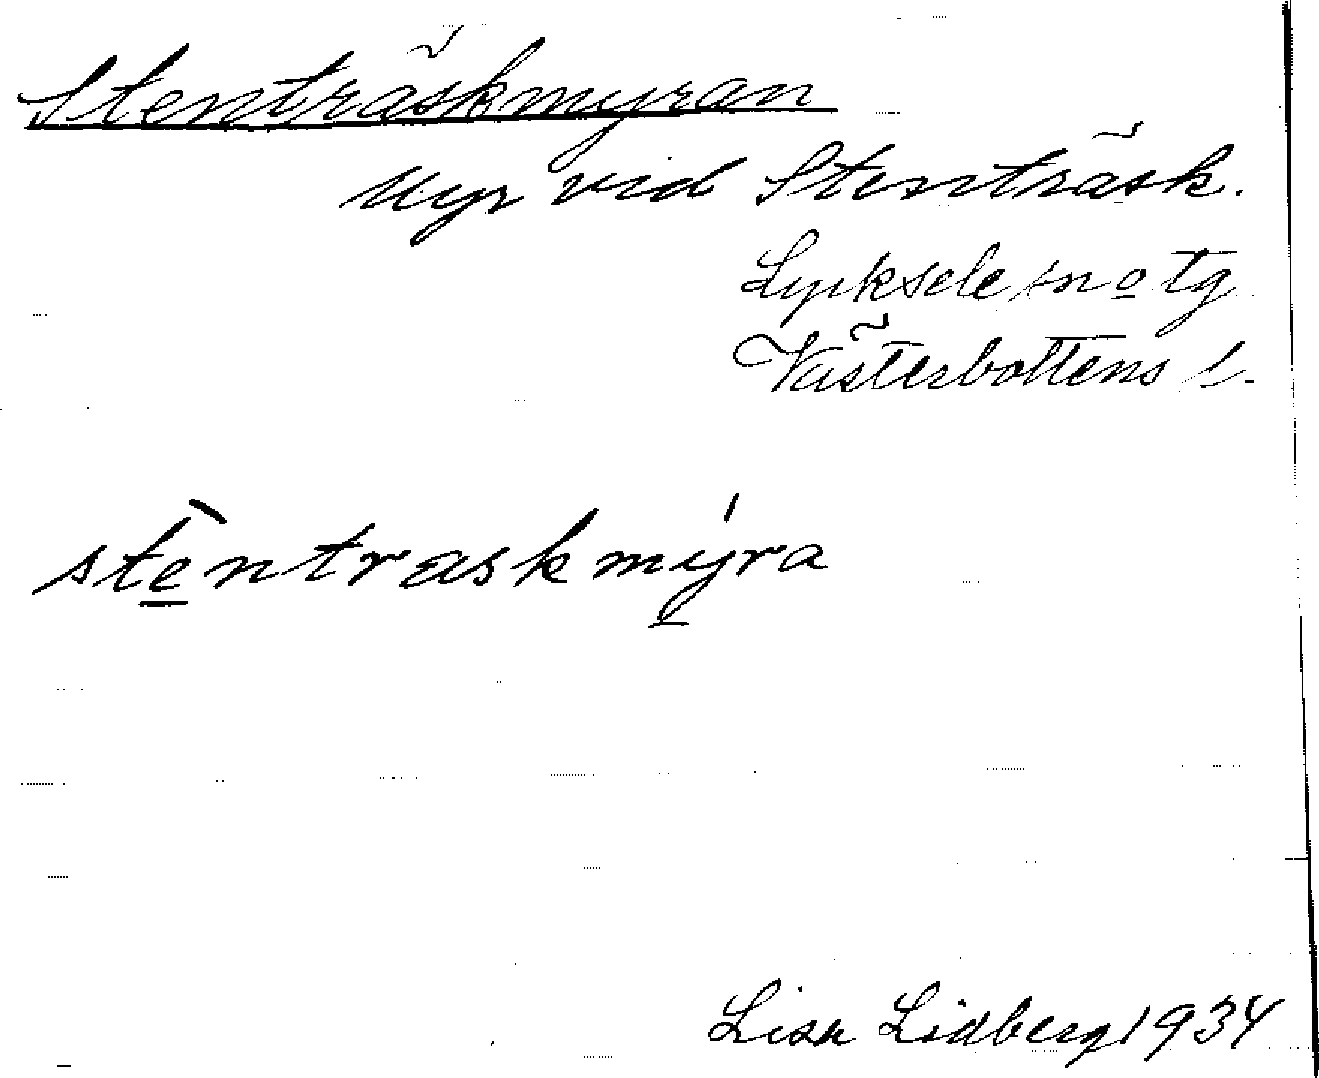 Stenträskmyran
Myr vid Stenträsk.
Lycksele sn o tg
Västerbottens l.
stèntraskmýra
Lisa Lidberg 1934